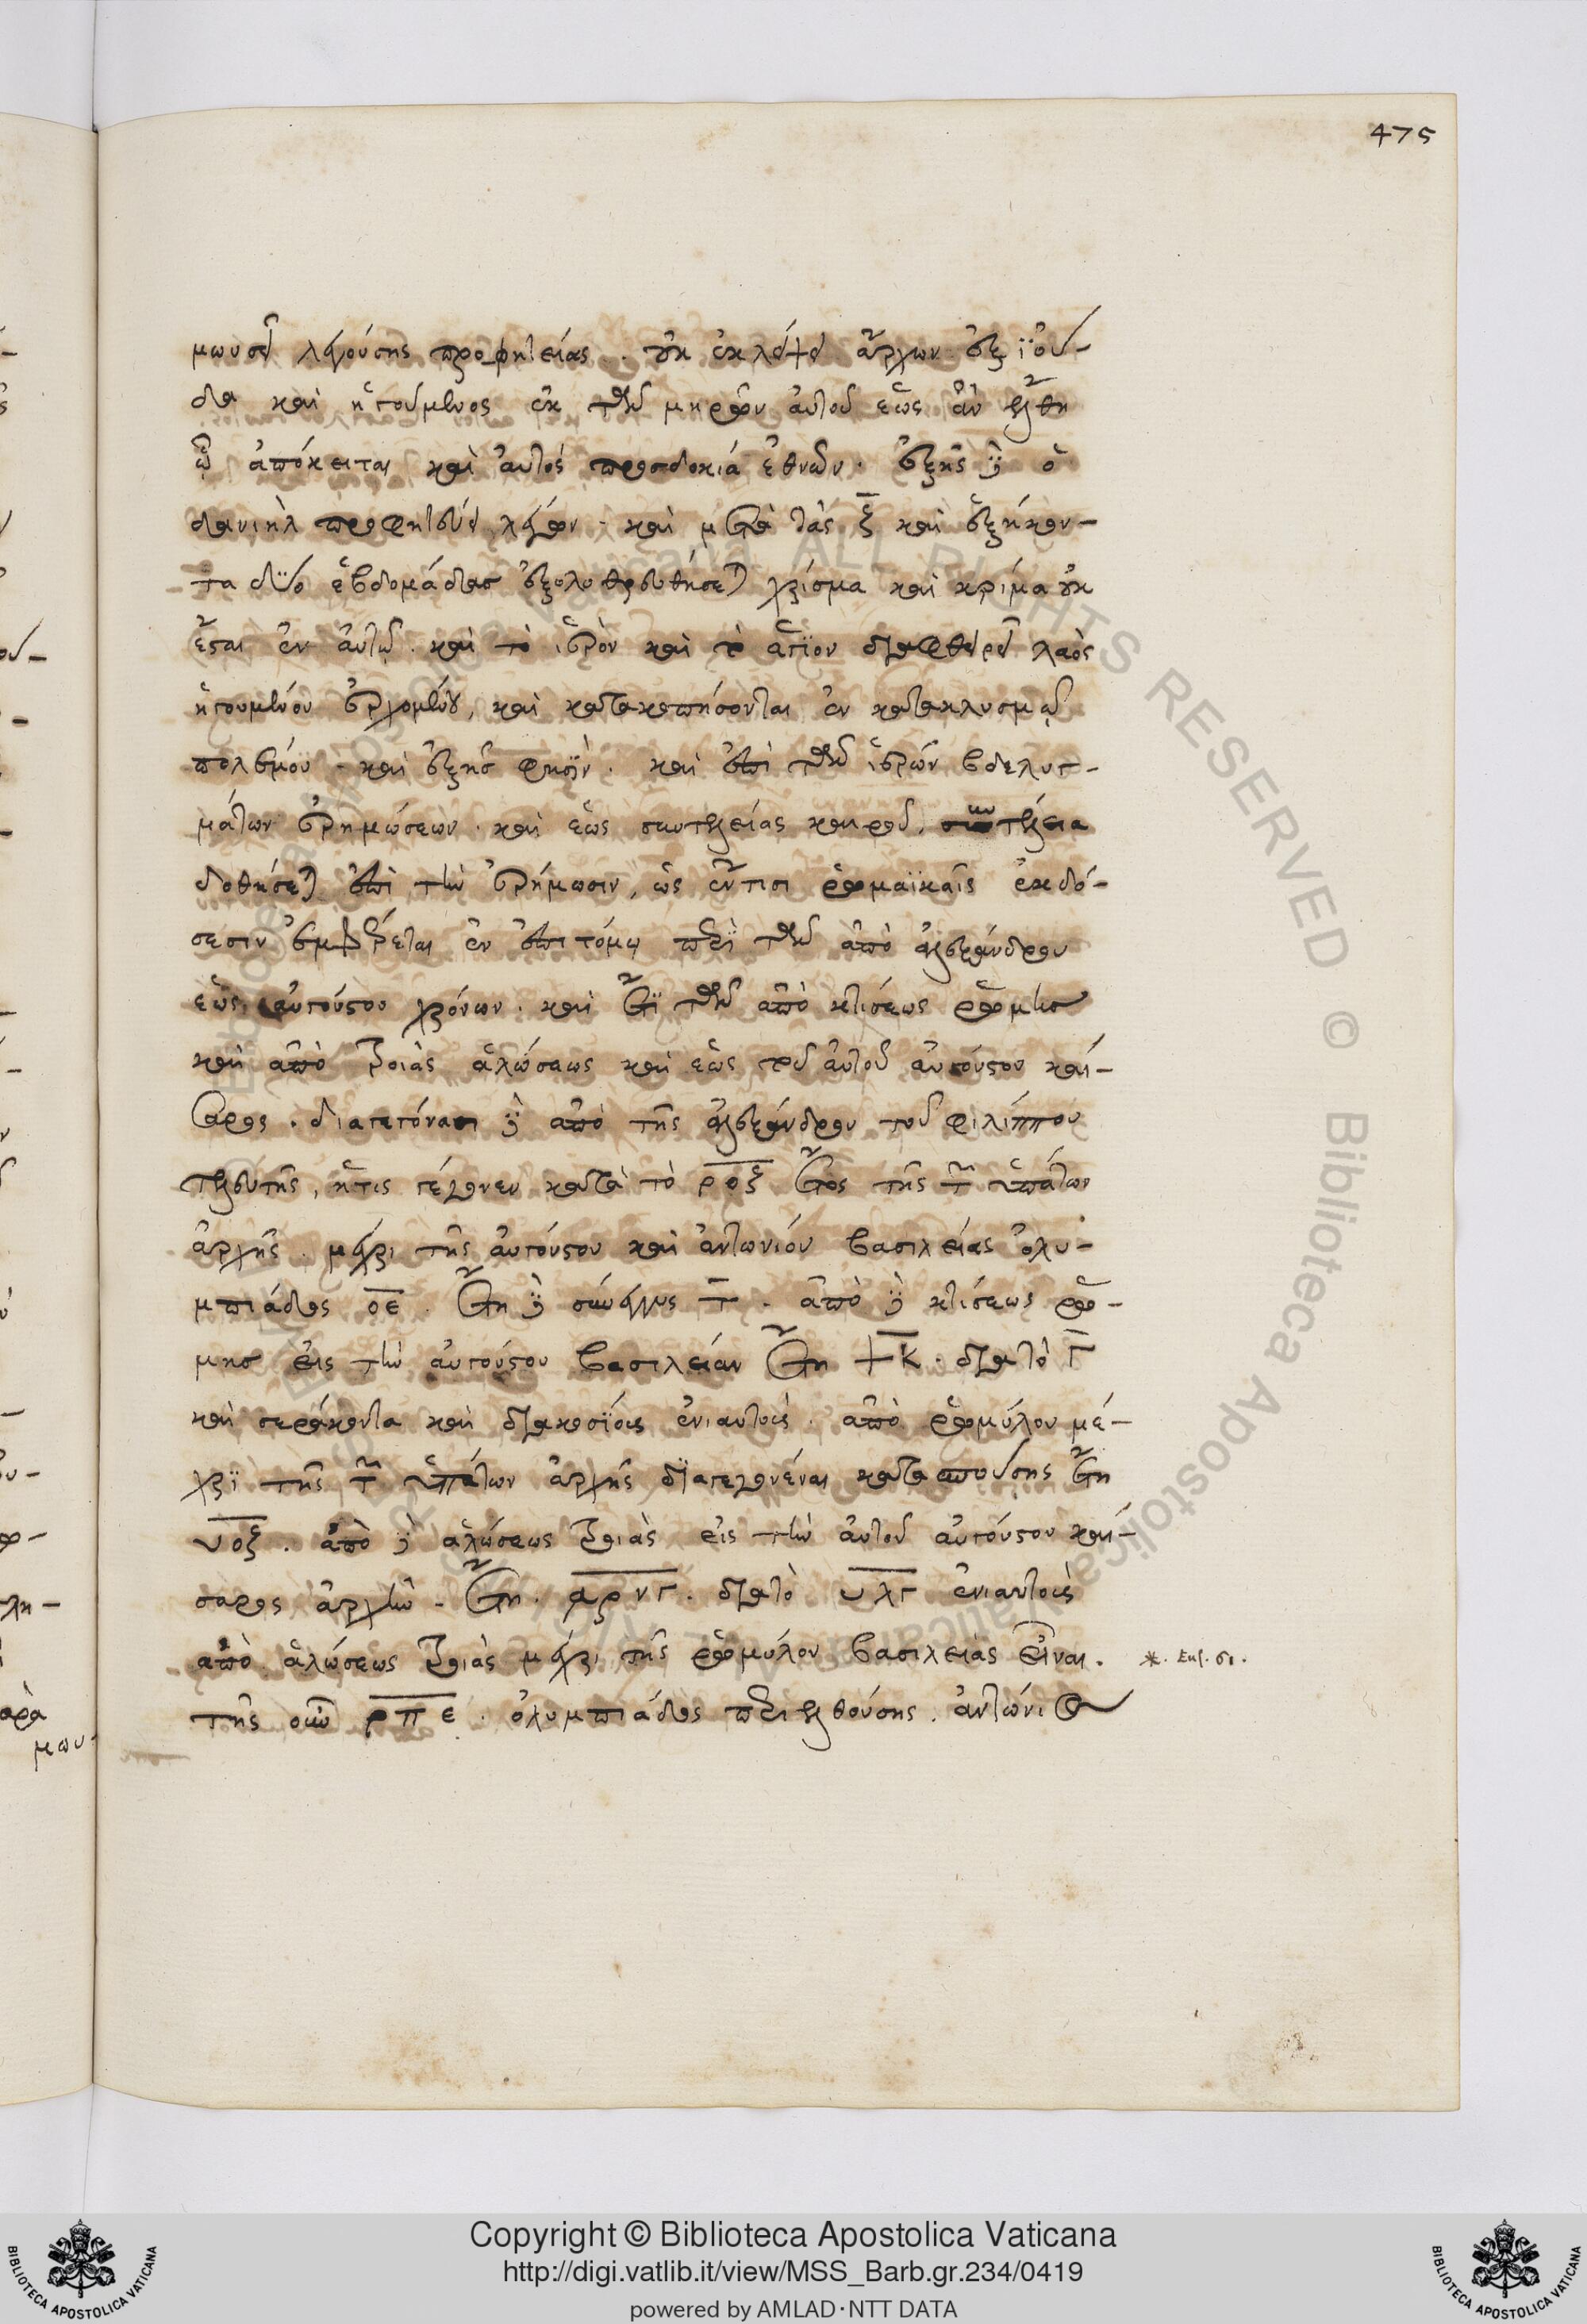 475
μωυσεῖ λεγούσης προφητείας. οὐκ ἐκλείψει ἄρχων ἐξ ἰού-
δα καὶ ἡγούμενος ἐκ τῶν μηρῶν αὐτοῦ ἕως ἂν ἔλθη
ᾧ ἀπόκειται καὶ αὐτὸς προσδοκία ἐθνῶν. ἑξῆς δὲ ὁ
δανιὴλ προφητεύει λέγων. καὶ μετὰ τὰς ξ̅ καὶ ἑξήκον-
τα δύο ἑβδομάδας ἐξολοθρευθήσεται χρίσμα καὶ κρίμα οὐκ
ἔσται ἐν αὐτῷ. καὶ τὸ ἱερὸν καὶ τὸ ἅγιον διαφθερεῖ λαὸς
ἡγουμένου ἐρχομένου, καὶ κατακοπήσονται ἐν κατακλυσμῷ
πολέμου. καὶ ἑξῆς φησὶν. καὶ ἐπὶ τῶν ἱερῶν βδελυγ-
μάτων ἐρημώσεων. καὶ ἕως συντελείας καιροῦ, συντέλεια
δοθήσεται ἐπὶ τὴν ἐρήμωσιν, ὡς ἔν τισι ῥωμαϊκαῖς ἐκδό-
σεσιν ἐμφέρεται ἐν ἐπιτόμῳ περὶ τῶν ἀπὸ ἀλεξάνδρου
ἕως αὐγούστου χρόνων. καὶ ἔτι τῶν ἀπὸ κτίσεως ῥώμης
καὶ ἀπὸ τροίας ἁλώσεως καὶ ἕως τοῦ αὐτοῦ αὐγούστου καί-
σαρος. διαγεγόνασι δὲ ἀπὸ τῆς ἀλεξάνδρου τοῦ φιλίππου
τελευτῆς, ἥτις γέγονεν κατὰ τὸ ρ̅ο̅ξ̅ ἔτος τῆς τῶν ὑπάτων
ἀρχῆς. μέχρι τῆς αὐγούστου καὶ ἀντωνίου βασιλείας ὀλυ-
μπιάδος ο̅ε̅. ἔτη δὲ συνεγγυς τ̅. ἀπὸ δὲ κτίσεως ῥώ-
μης εἰς τὴν αὐγούστου βασιλείαν ἔτη ψ̅κ̅. διὰ τὸ γ̅
καὶ σεράκοντα καὶ διακοσίοις ἐνιαυτοῖς. ἀπὸ ῥωμύλου μέ-
χρι τῆς τῶν ὑπάτων ἀρχῆς διαγεγονέναι κατὰ σπούσης ἔτη
υ̅ο̅ξ̅. ἀπὸ δὲ ἁλώσεως τροίας εἰς τὴν αὐτοῦ αὐγούστου καί-
σαρος ἀρχὴν. ἔτη. α̅ρ̅ν̅γ̅. διὰ τὸ υ̅λ̅γ̅ ἐνιαυτοὺς
ἀπὸ ἁλώσεως τροίας μέχρι τῆς ῥωμύλου βασιλείας εἶναι. *. Eus. 61.
τῆς οὖν ρ̅π̅ε̅. ὀλυμπιάδος περιελθούσης. ἀντώνιος
Copyright © Biblioteca Apostolica Vaticana
http://digi.vatlib.it/view/MSS_Barb.gr.234/0419
powered by AMLAD·NTT DATA